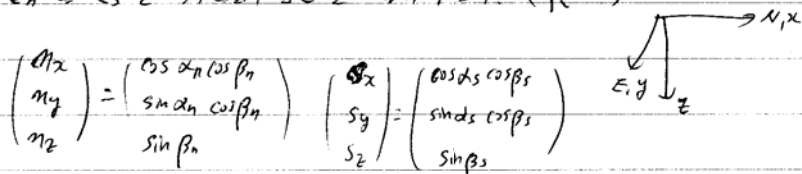 N, x
E, y
z
(nx ny nz) = (cos αn cos βn sin αn cos βn sin βn) (sx sy sz) = (cos αs cos βs sin αs cos βs sin βs)